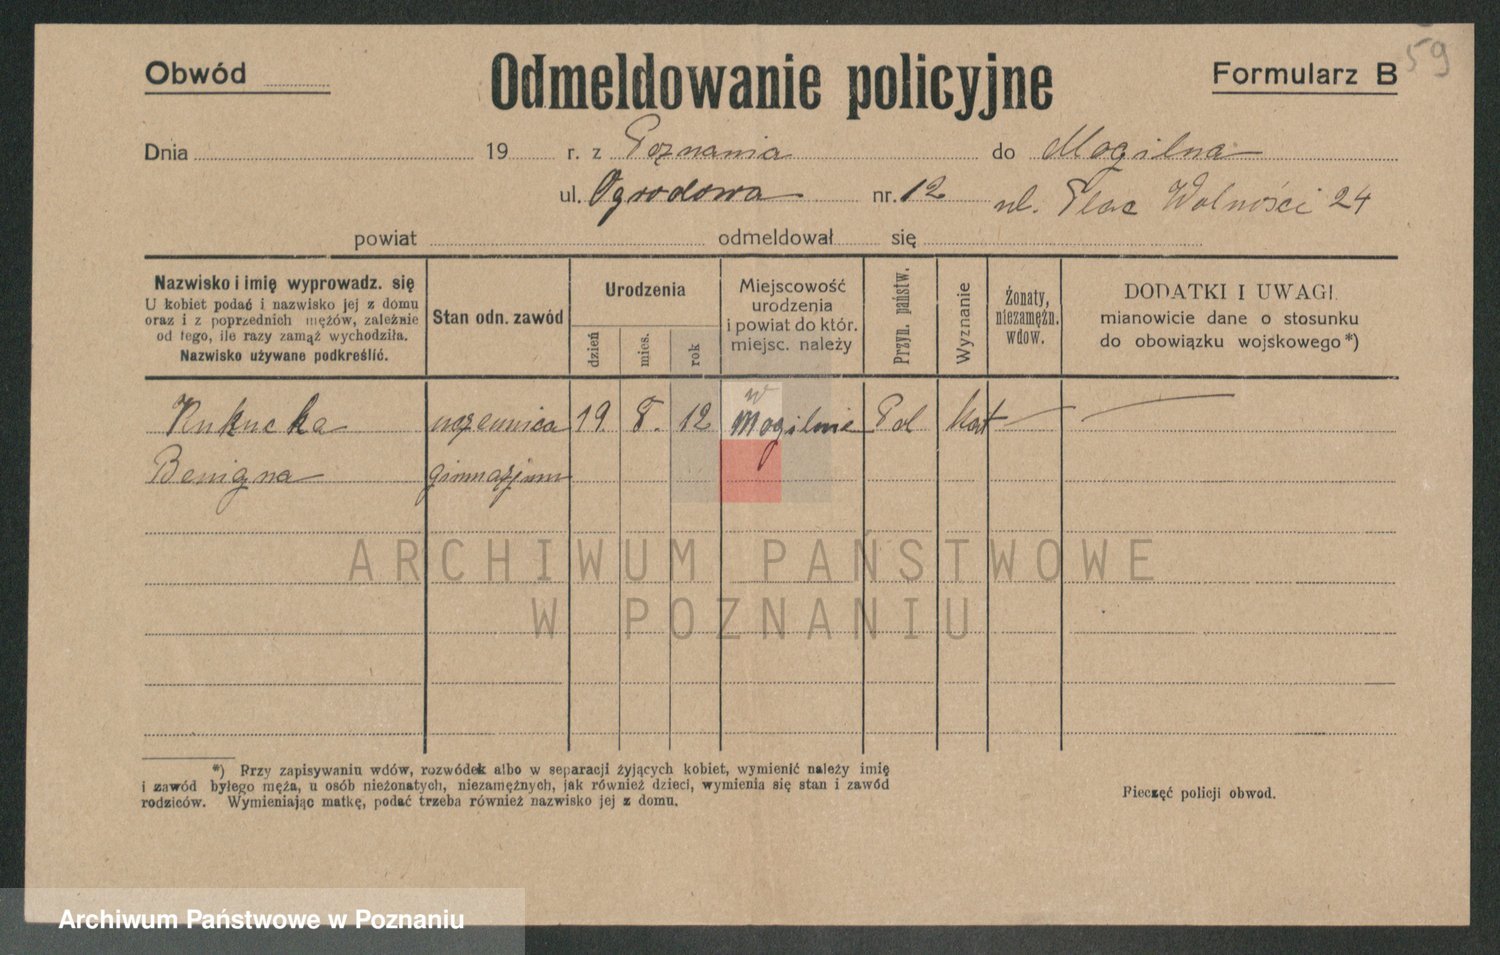 59
Obwód Odmeldowanie policyjne Formularz B
Dnia 19 r. z Poznania do Mogilna
ul. Ogrodowa nr. 12 ul. Plac Wolności 24
powiat odmeldował się
Nazwisko i imię wyprowadz. się
U kobiet podać i nazwisko jej z domu
oraz i z poprzednich mężów, zależnie
od tego, ile razy zamąż wychodziła.
Nazwisko używane podkreślić.
Stan odn. zawód
Urodzenia
dzień
mies.
rok
Miejscowość
urodzenia
i powiat do któr.
miejsc. należy
Przyn. państw.
Wyznanie
Żonaty,
niezamężn.
wdow.
DODATKI I UWAGI.
mianowicie dane o stosunku
do obowiązku wojskowego*)
w
Kukucka uczennica 19. 8. 12 Mogilnie Pol kat
Benigna gimnazjum
ARCHIWUM PAŃSTWOWE
W POZNANIU
*) Przy zapisywaniu wdów, rozwódek albo w separacji żyjących kobiet, wymienić należy imię
i zawód byłego męża, u osób nieżonatych, niezamężnych, jak również dzieci, wymienia się stan i zawód
rodziców. Wymieniając matkę, podać trzeba również nazwisko jej z domu.
Pieczęć policji obwod.
Archiwum Państwowe w Poznaniu